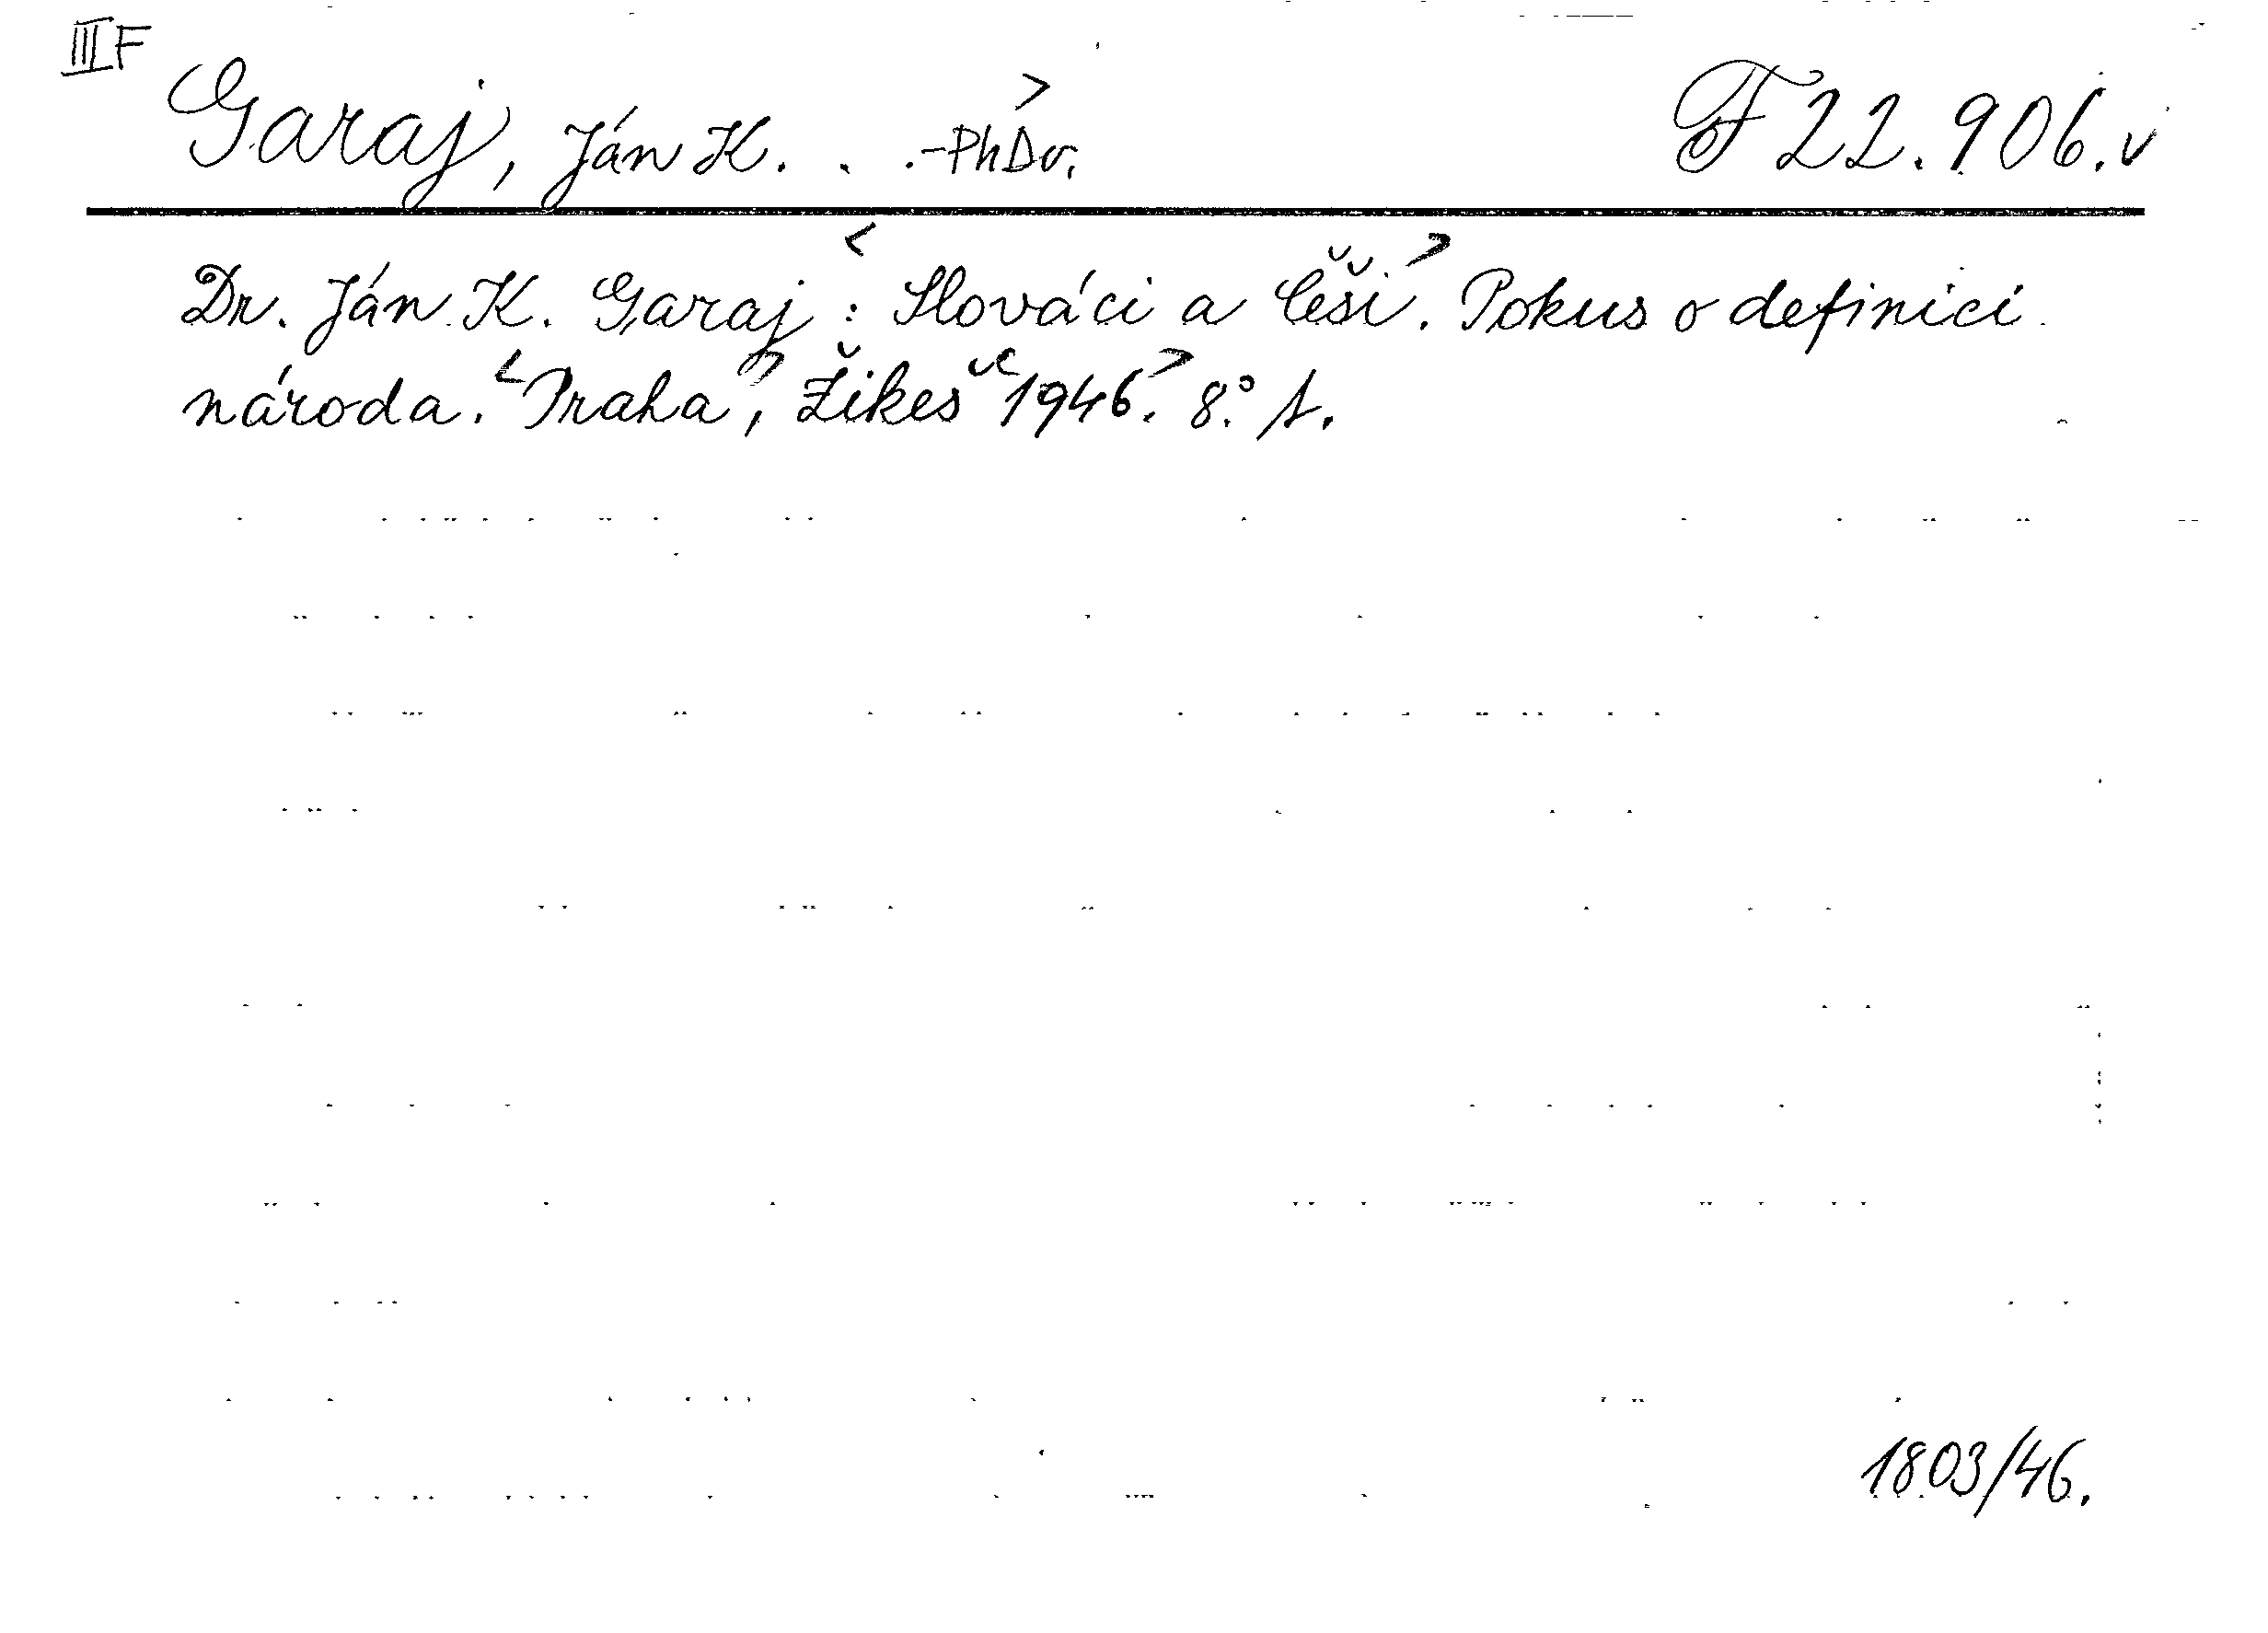 III F
Garaj, Ján K. . .-PhDr. > F 22.906.v
Dr. Ján K. Garaj : <Slováci a Češi>. Pokus o definici
národa. <Praha>, Žikeš <1946.> 8.° A.
1803/46.